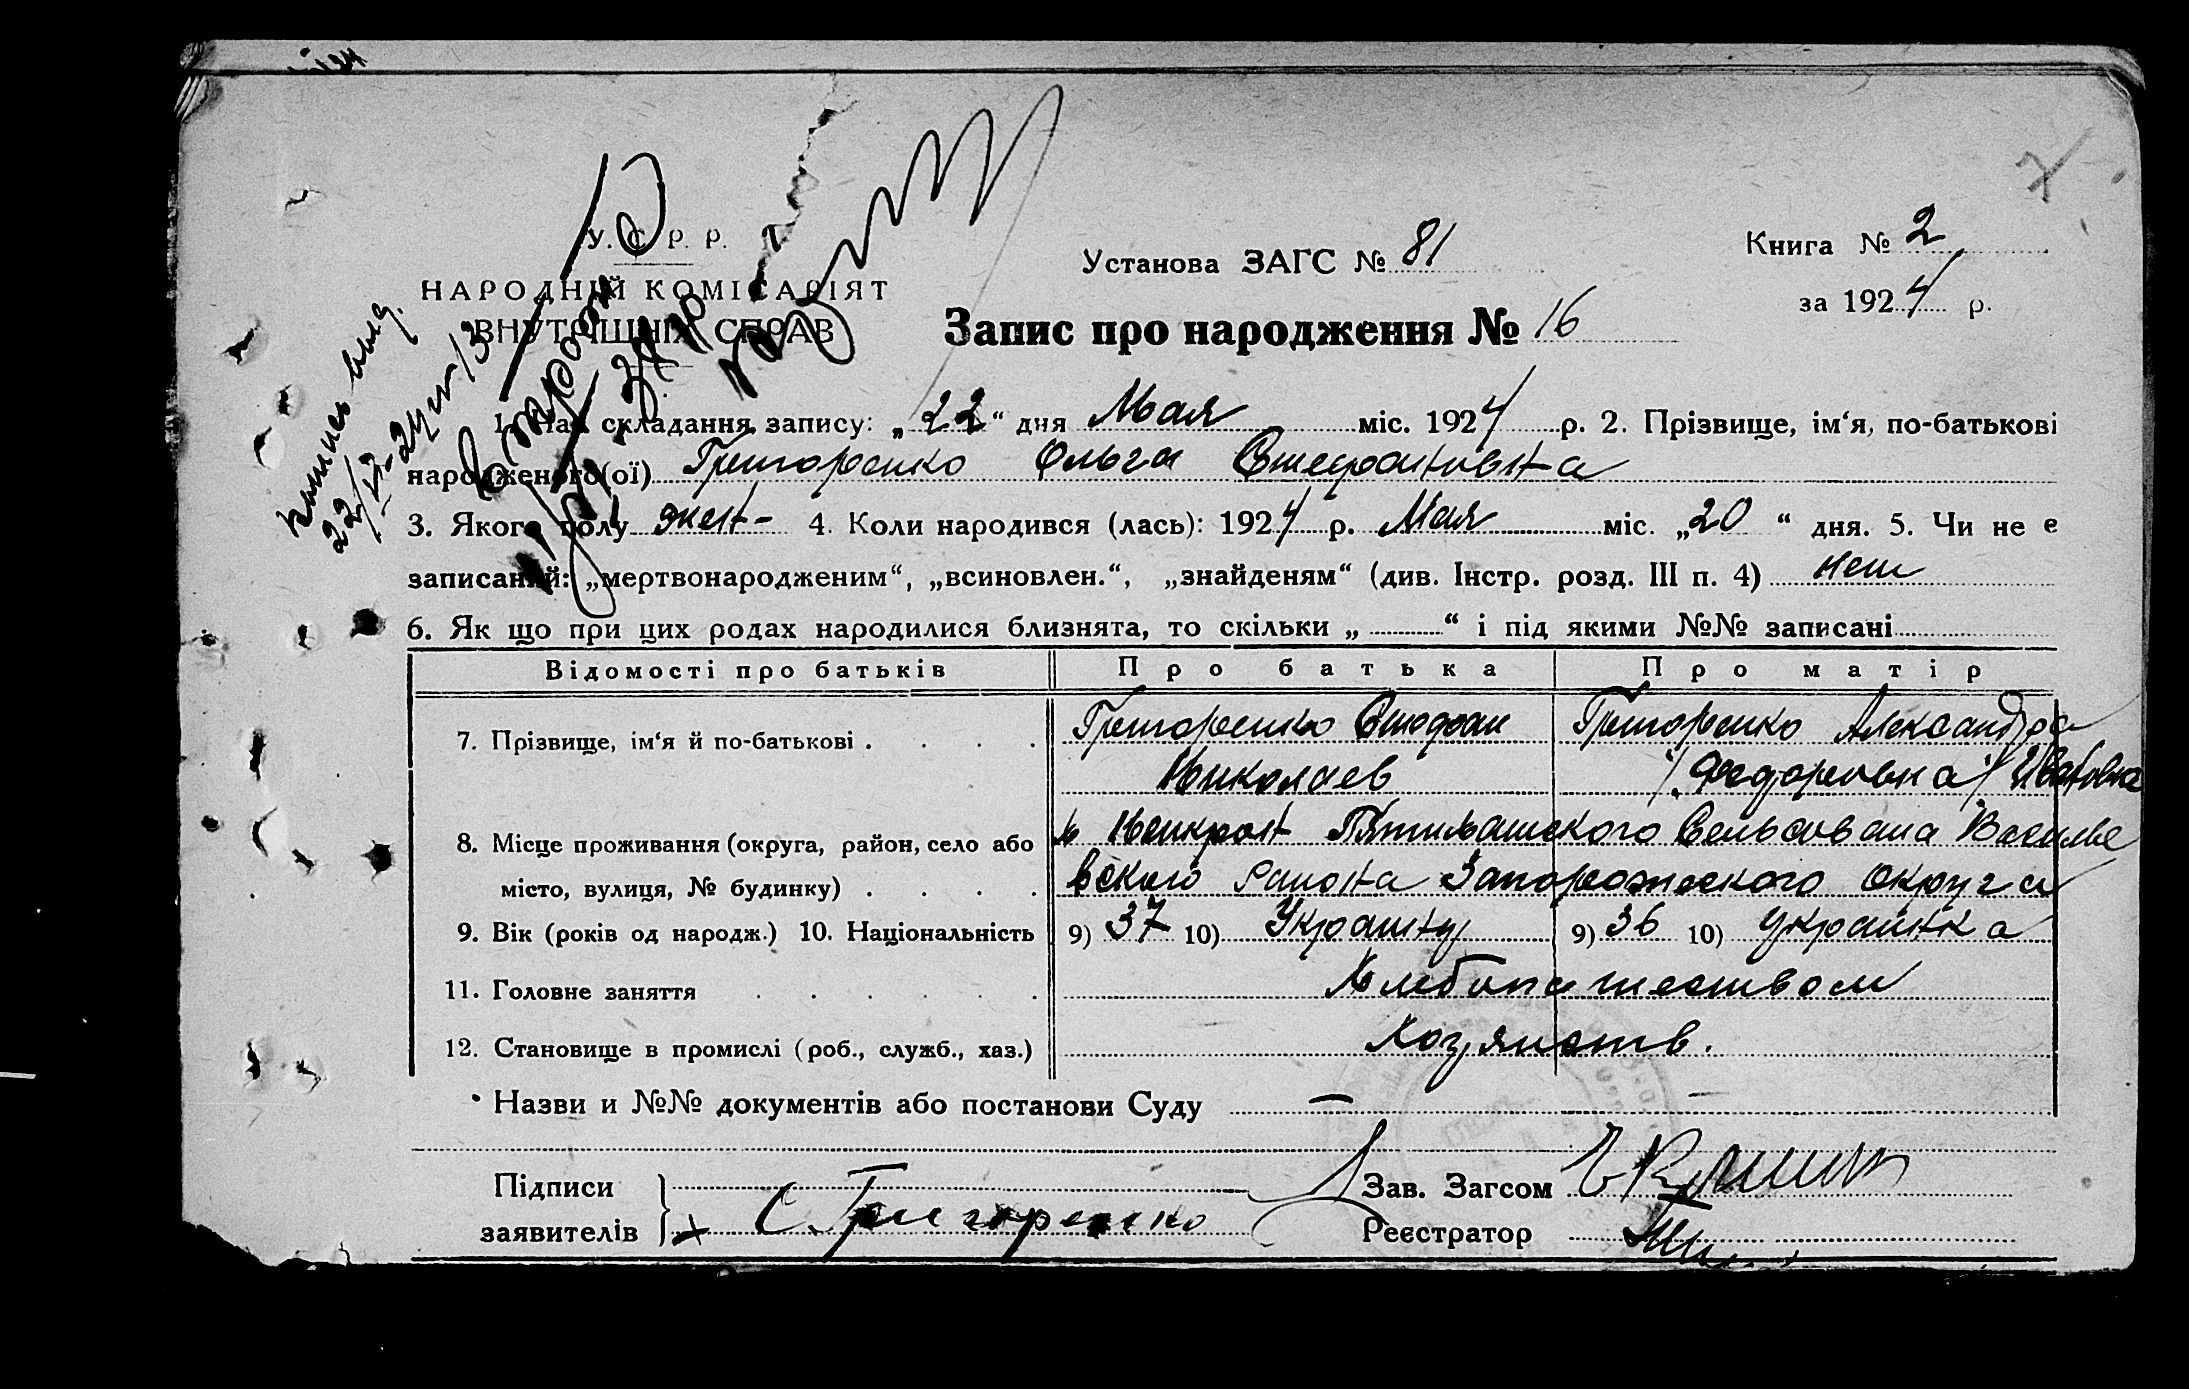 У. С. Р. Р.
НАРОДНІЙ КОМІСАРІЯТ
ВНУТРІШНІХ СПРАВ
Установа ЗАГС № 81
Книга № 2
за 1924 р.
Запис про народження № 16
1. Час складання запису: „22“ дня Мая міс. 1924 р. 2. Прізвище, ім‘я, по-батькові
народженого(ої) Григоренко Ольга Стефановна
3. Якого полу жен- 4. Коли народився (лась): 1924 р. Мая міс. „20“ дня. 5. Чи не є
записаний: „мертвонародженим“, „всиновлен.“, „знайденям“ (див. Інстр. розд. III п. 4) нет
6. Як що при цих родах народилися близнята, то скільки „ “ і під якими №№ записані
Відомості про батьків Про батька Про матір
7. Прізвище, ім‘я й по-батькові Григоренко Стефан Григоренко Александра
Николаев /Федоровна/ Ивановна
8. Місце проживання (округа, район, село або Сельсовета Василье
місто, вулиця, № будинку) вского Района Запорожского Округа
9. Вік (років од народж.) 10. Національність 9) 37 10) Украинц 9) 36 10) Украинка
11. Головне заняття Хлебопашеством
12. Становище в промислі (роб., служб., хаз.) Хозяиств.
Назви и №№ документів або постанови Суду —
Підписи
заявителів С. Григоренко
Зав. Загсом
Реєстратор